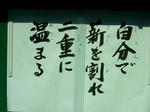 自分で
薪を割れ
二重に
温まる